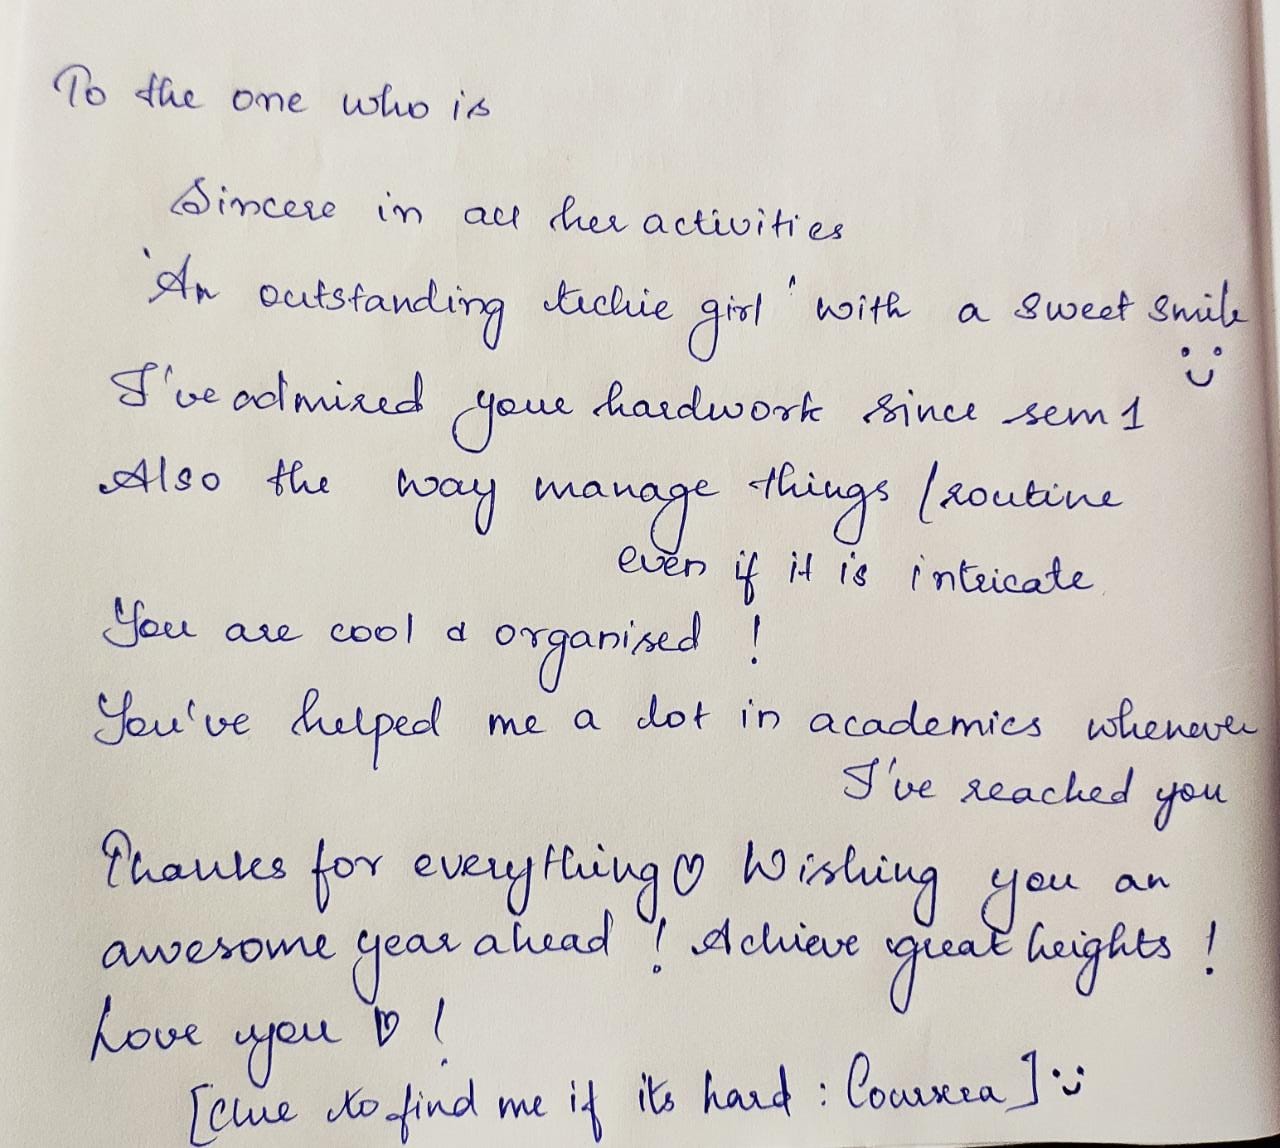 To the one who is
Sincere in all her activities
'An outstanding techie girl' with a sweet smile
I've admired your hardwork since sem 1
Also the way manage things / routine
even if it is intricate
You are cool & organised !
You've helped me a lot in academics whenever
I've reached you
Thanks for everything ♡ Wishing you an
awesome year ahead ! Achieve great heights !
Love you ♡ !
[Clue to find me if its hard : Coursera]